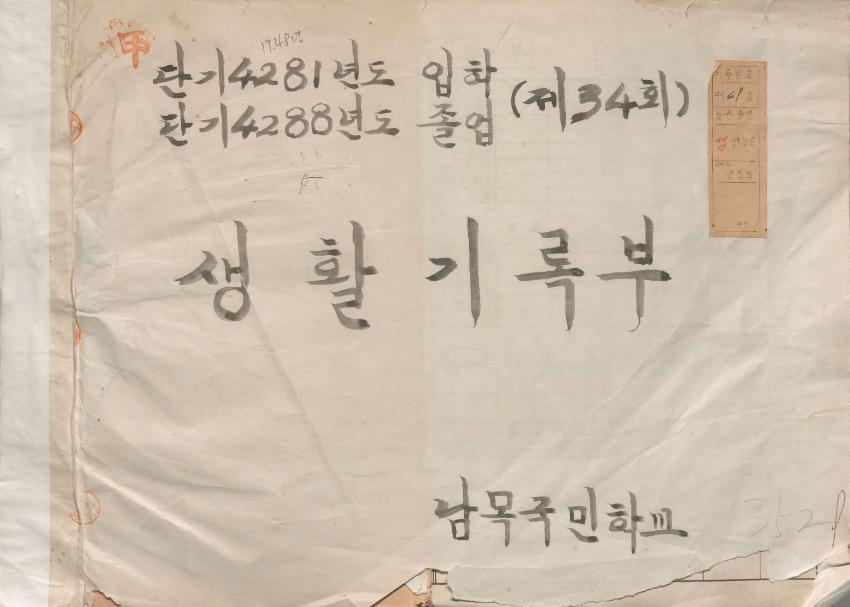 甲
1948년
단기4281년도 입학
단기4288년도 졸업
(제34회)
생활기록부
남목국민학교